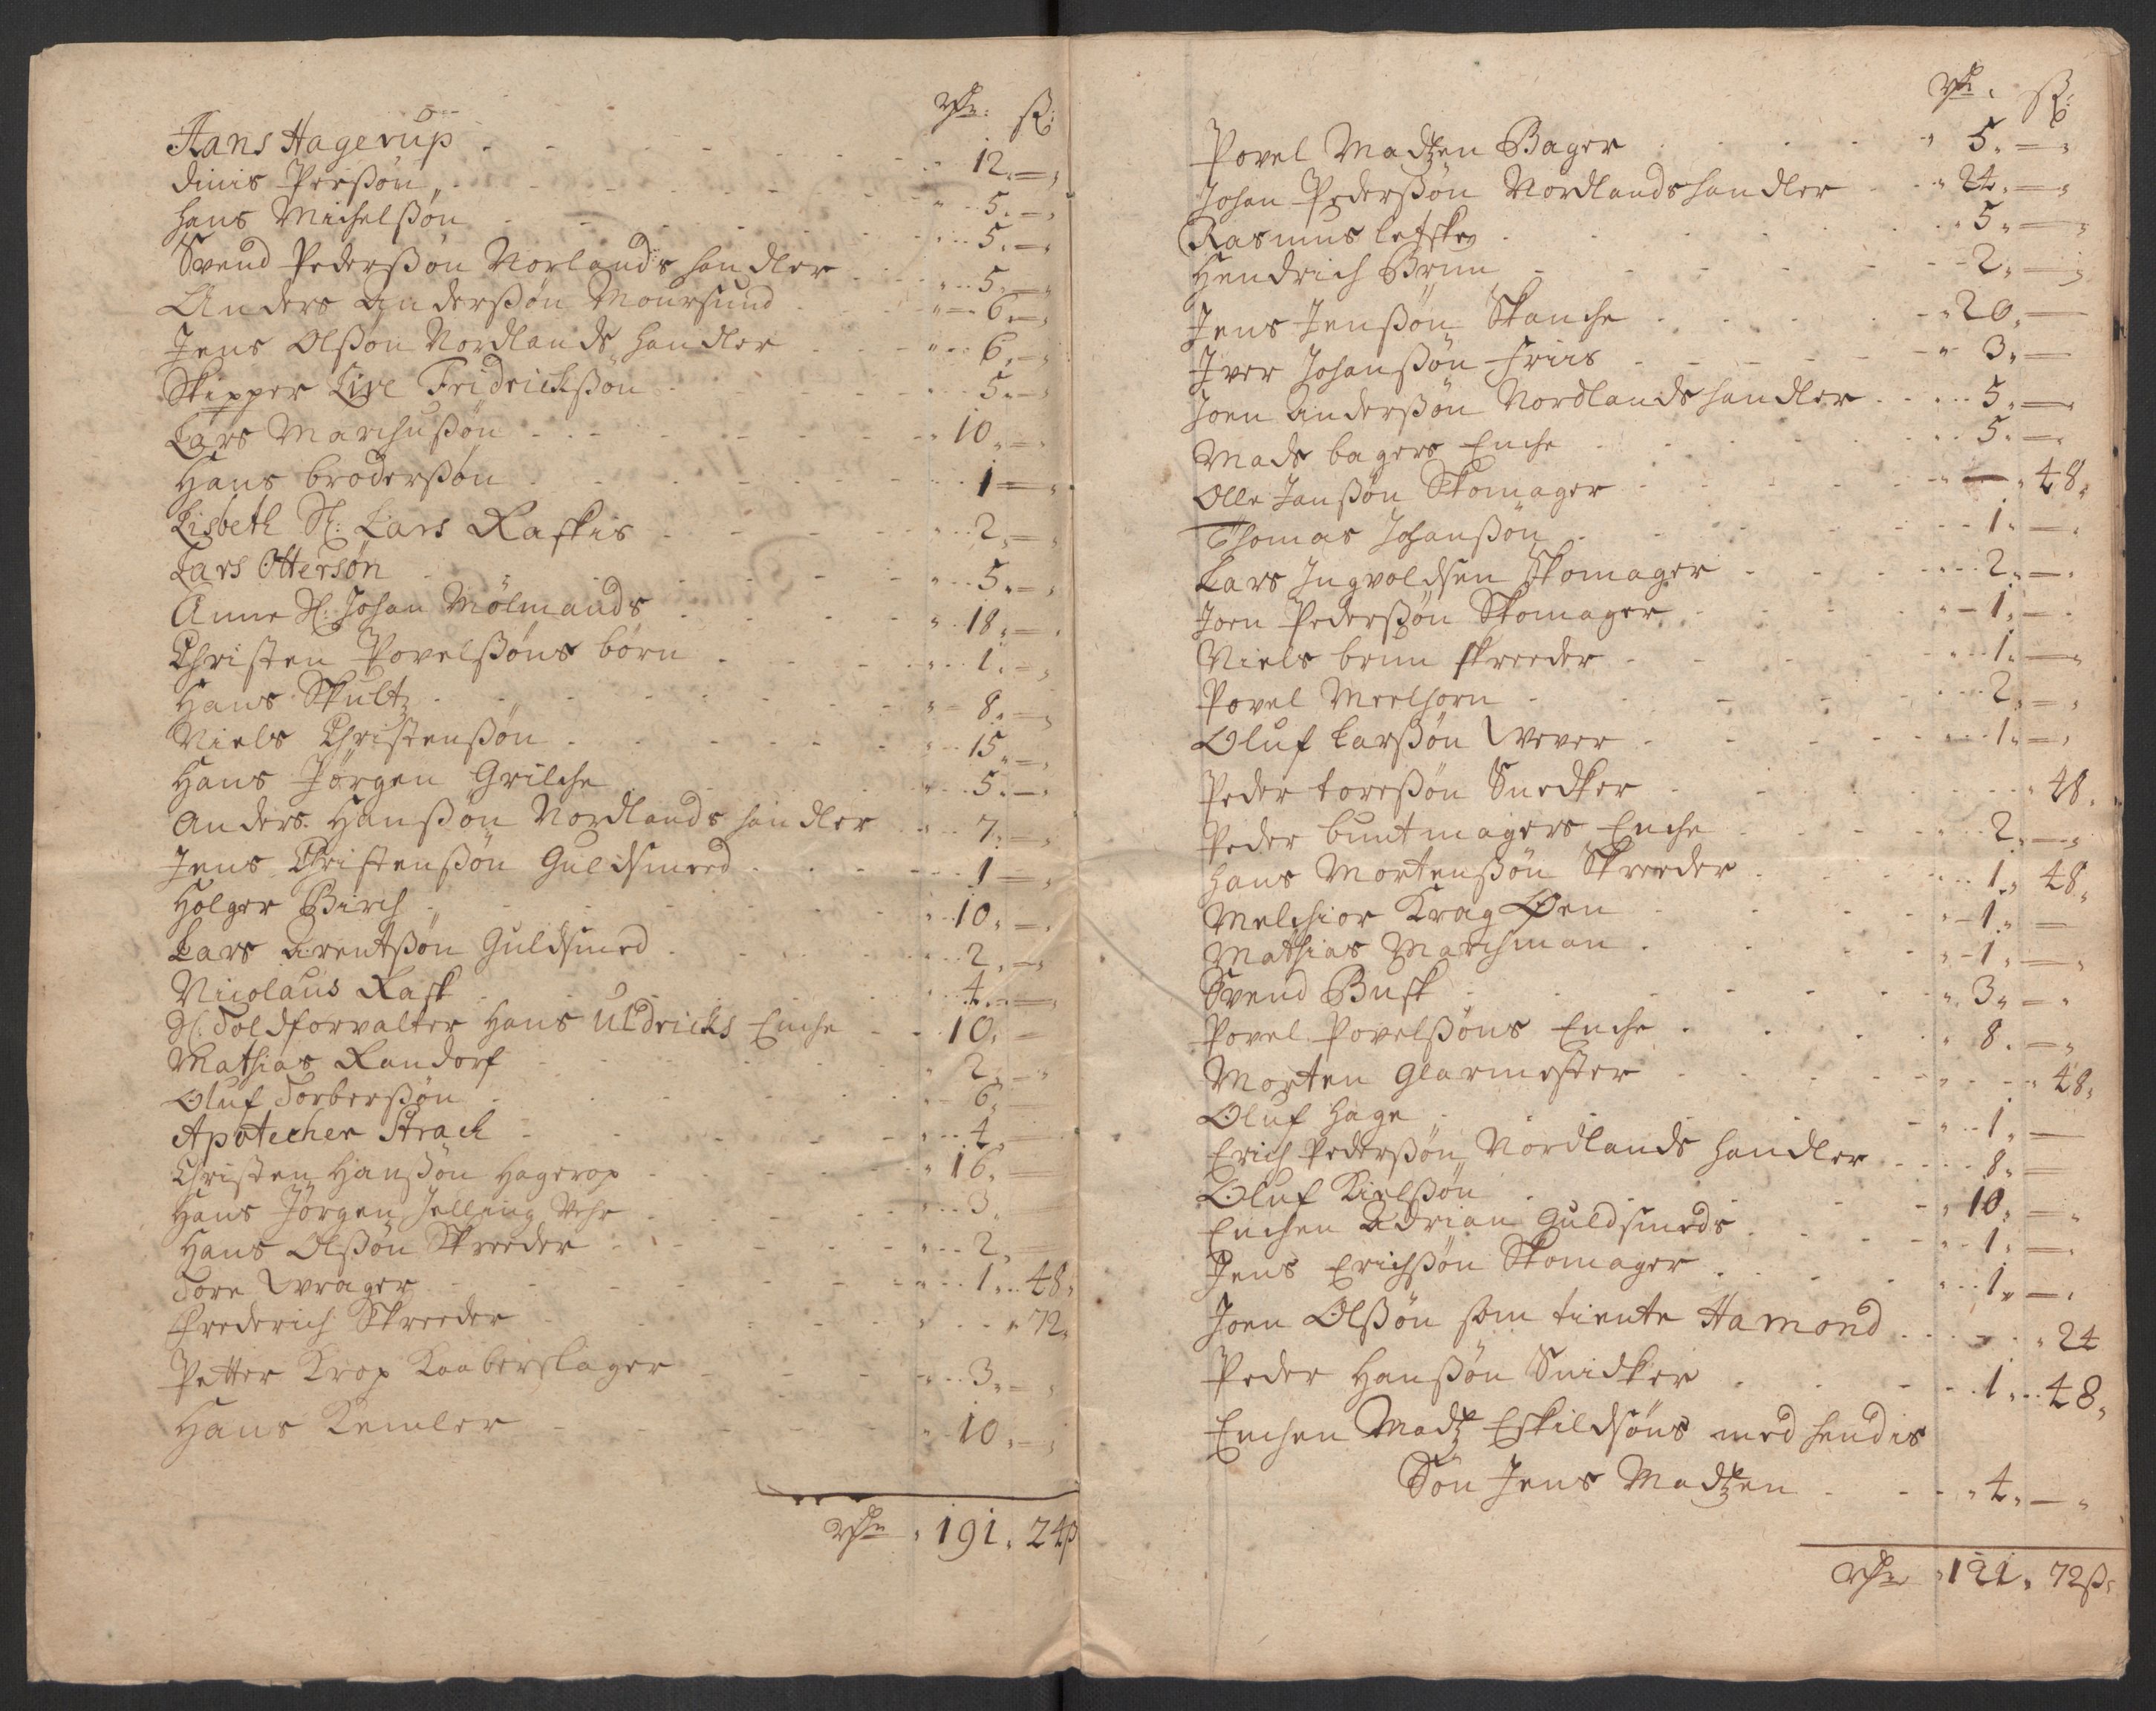 Rdr: ß:
Hans Hagerup - - - 12. —
dinis Perßøn - - - 5. —
Hans Michelßøn - - - 5. —
Svend Pederßøn Norlands handler - 5. —
Anders Anderßøn Moursund - 6. —
Jens Olßøn Nordlands handler - 6. —
Skipper Live Fridrichßøn - 5. —
Lars Marchußøn - - - 10. —
Hans broderßøn - - - 1 —
Lisbeth Sl: Lars Raskis - 2. —
Lars Ottersøn - - - 5. —
Anne Sl: Johan Mølmands - 18. —
Christen Povelßøns børn - 1. —
Hans Skultz - - - 8. —
Niels Christenßøn - - - 15. —
Hans Jørgen Grilche - 5. —
Anders Hanßøn Nordlands handler - 7. —
Jens Christenßøn Guldsmed - 1 —
Holger Birch - - - 10. —
Lars Arentßøn Guldsmed - 2. —
Nicolaus Rask - - - 4. —
Sl. Toldforvalter Hans Uldrichs Enche - 10. —
Mathias Randorf - - - 2. —
Oluf Torberßøn - - - 6. —
Apotecher Strach - - - 4. —
Christen Hanßøn Hagerop - 16. —
Hans Jørgen Jelling - 3.
Hans Olßøn Skreder - 2. —
Tore Wrager - - - 1. 48.
Frederich Skreder - - - 72.
Petter Krop Kaaberslager - 3. —
Hans Kemler - - - 10. —
Rdr 191. 24ß
Rdr. ß:
Povel Madtzen Bager - 5. —
Johan Pederßøn Nordlandshandler - 24. —
Rasmus letske - 5. —
Hendrich Brun - 2. —
Jens Jenßøn Skanche - 20. —
Iver Johanßøn Friis - 3. —
Joen Anderßøn Nordlandshandler - 5. —
Mads bagers Enche - 5. —
Olle Janßøn Skomager - — 48.
Thomas Johanßøn - 1. —
Lars Ingvoldsen Skomager - 2. —
Joen Pederßøn Skomager - 1. —
Niels brun skreder - 1. —
Povel Meelhorn - 2. —
Oluf Larßøn Wever - 1. —
Peder toreßøn Snedker - 48.
Peder buntmagers Enche - 2. —
Hans Mortenßøn Skreder - 1. 48.
Melchior Krag Øen - 1. —
Mathias Marchman - 1. —
Svend Busk - 3. —
Povel Povelßøns Enche - 8. —
Morten Glarmester - 48.
Oluf Hage - 1. —
Erich Pederßøn Nordlands handler - 8. —
Oluf Kielßøn - 10. —
Enchen Adrian Guldsmeds - 1. —
Jens Erichßøn Skomager - 1. —
Joen Olßøn som tiente Hamond - 24
Peder Hanßøn Snidker - 1. 48.
Enchen Madtz Eskildsøns med hendis
Søn Jens Madtzen - 4. —
Rdr 121. 72ß.